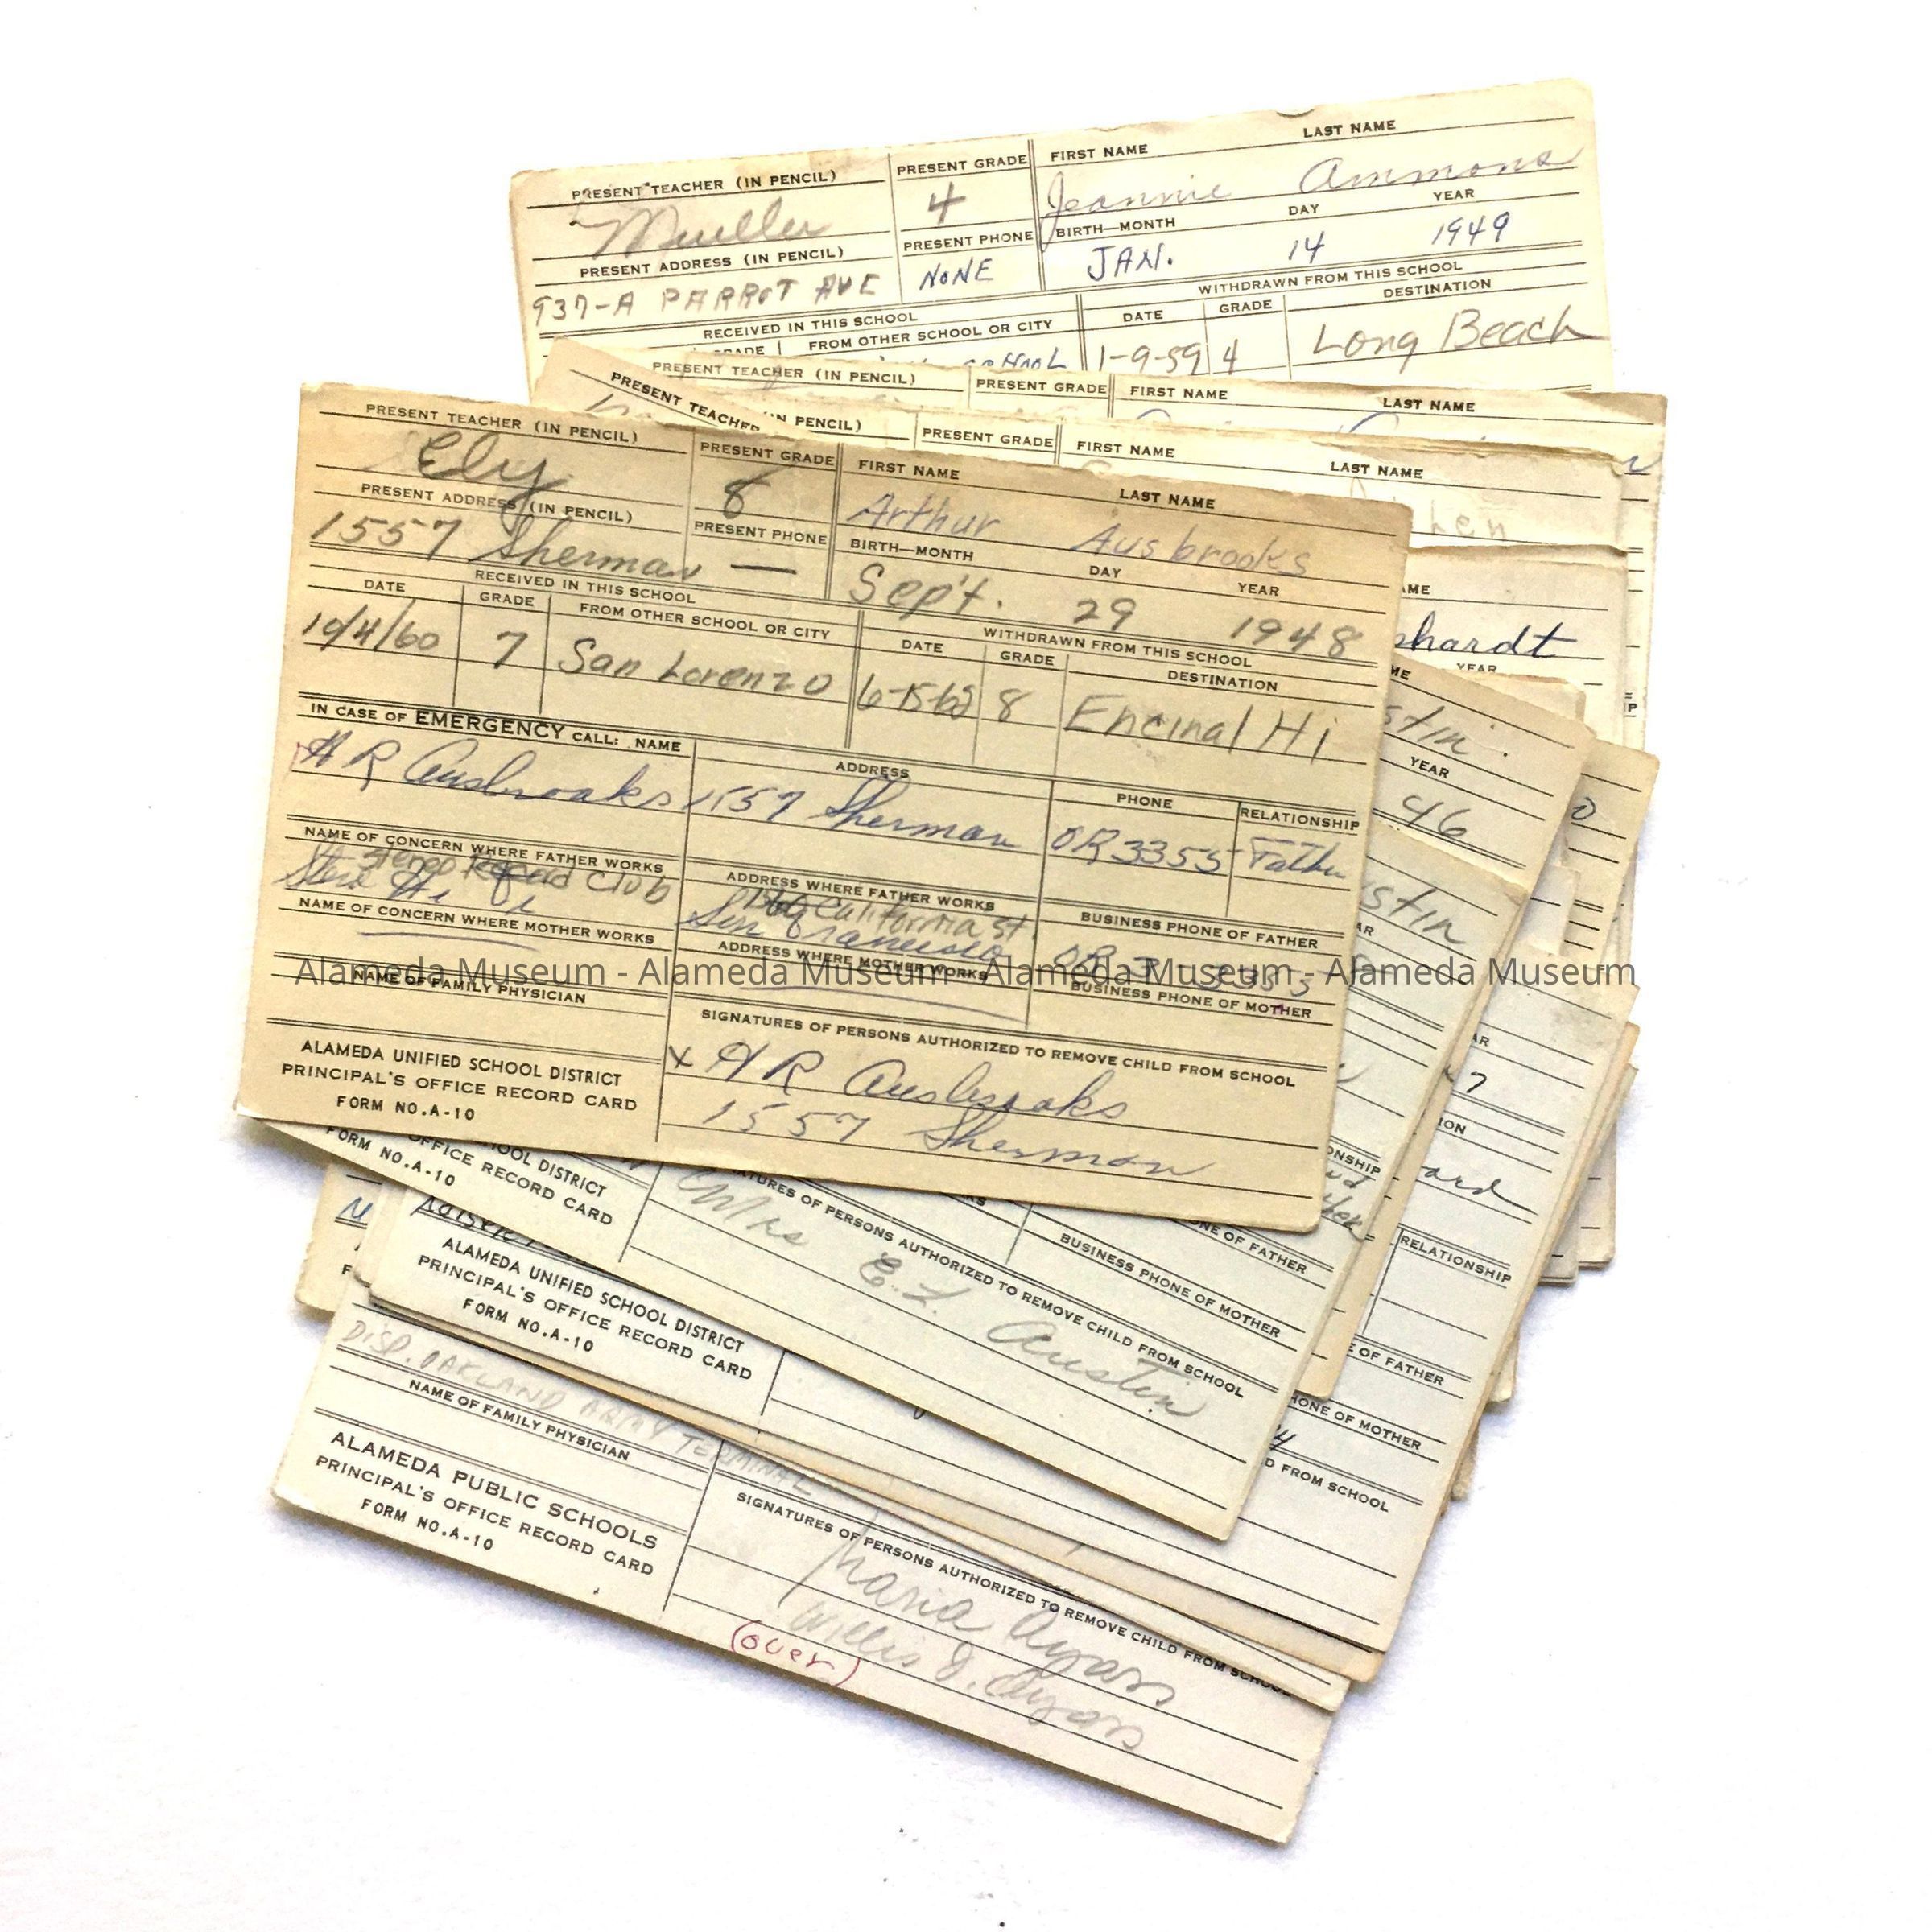 PRESENT TEACHER (IN PENCIL) PRESENT GRADE FIRST NAME LAST NAME
Mueller 4 Jeannie Ammons
PRESENT ADDRESS (IN PENCIL) PRESENT PHONE BIRTH—MONTH DAY YEAR
937-A PARROT AVE NONE JAN. 14 1949
RECEIVED IN THIS SCHOOL WITHDRAWN FROM THIS SCHOOL
GRADE FROM OTHER SCHOOL OR CITY DATE GRADE DESTINATION
1-9-59 4 Long Beach
PRESENT TEACHER (IN PENCIL) PRESENT GRADE FIRST NAME LAST NAME
PRESENT TEACHER (IN PENCIL) PRESENT GRADE FIRST NAME LAST NAME
PRESENT TEACHER (IN PENCIL) PRESENT GRADE FIRST NAME LAST NAME
Ely 8 Arthur Ausbrooks
PRESENT ADDRESS (IN PENCIL) PRESENT PHONE BIRTH—MONTH DAY YEAR
1557 Sherman — Sep't. 29 1948
RECEIVED IN THIS SCHOOL WITHDRAWN FROM THIS SCHOOL
DATE GRADE FROM OTHER SCHOOL OR CITY DATE GRADE DESTINATION
10/4/60 7 San Lorenzo 6-15-62 8 Encinal Hi
IN CASE OF EMERGENCY CALL: NAME ADDRESS PHONE RELATIONSHIP
H R Ausbrooks 1557 Sherman OR 3355 Father
NAME OF CONCERN WHERE FATHER WORKS ADDRESS WHERE FATHER WORKS BUSINESS PHONE OF FATHER
Stereo Record Club California st.
San Francisco
NAME OF CONCERN WHERE MOTHER WORKS ADDRESS WHERE MOTHER WORKS BUSINESS PHONE OF MOTHER
Alameda Museum - Alameda Museum - Alameda Museum - Alameda Museum
NAME OF FAMILY PHYSICIAN SIGNATURES OF PERSONS AUTHORIZED TO REMOVE CHILD FROM SCHOOL
x H R Ausbrooks
1557 Sherman
ALAMEDA UNIFIED SCHOOL DISTRICT
PRINCIPAL'S OFFICE RECORD CARD
FORM NO. A-10
hardt
YEAR
stin.
YEAR
46
stin
ard
RELATIONSHIP
OOL DISTRICT
OFFICE RECORD CARD
FORM NO. A-10
NE OF FATHER
BUSINESS PHONE OF MOTHER
TURES OF PERSONS AUTHORIZED TO REMOVE CHILD FROM SCHOOL
Mrs E. L. Austin
E OF FATHER
HONE OF MOTHER
D FROM SCHOOL
ALAMEDA UNIFIED SCHOOL DISTRICT
PRINCIPAL'S OFFICE RECORD CARD
FORM NO. A-10
DISP. OAKLAND ARMY TERMINAL
NAME OF FAMILY PHYSICIAN
SIGNATURES OF PERSONS AUTHORIZED TO REMOVE CHILD FROM SCHOOL
Maria Ayars
Willis J. Ayars
(over)
ALAMEDA PUBLIC SCHOOLS
PRINCIPAL'S OFFICE RECORD CARD
FORM NO. A-10